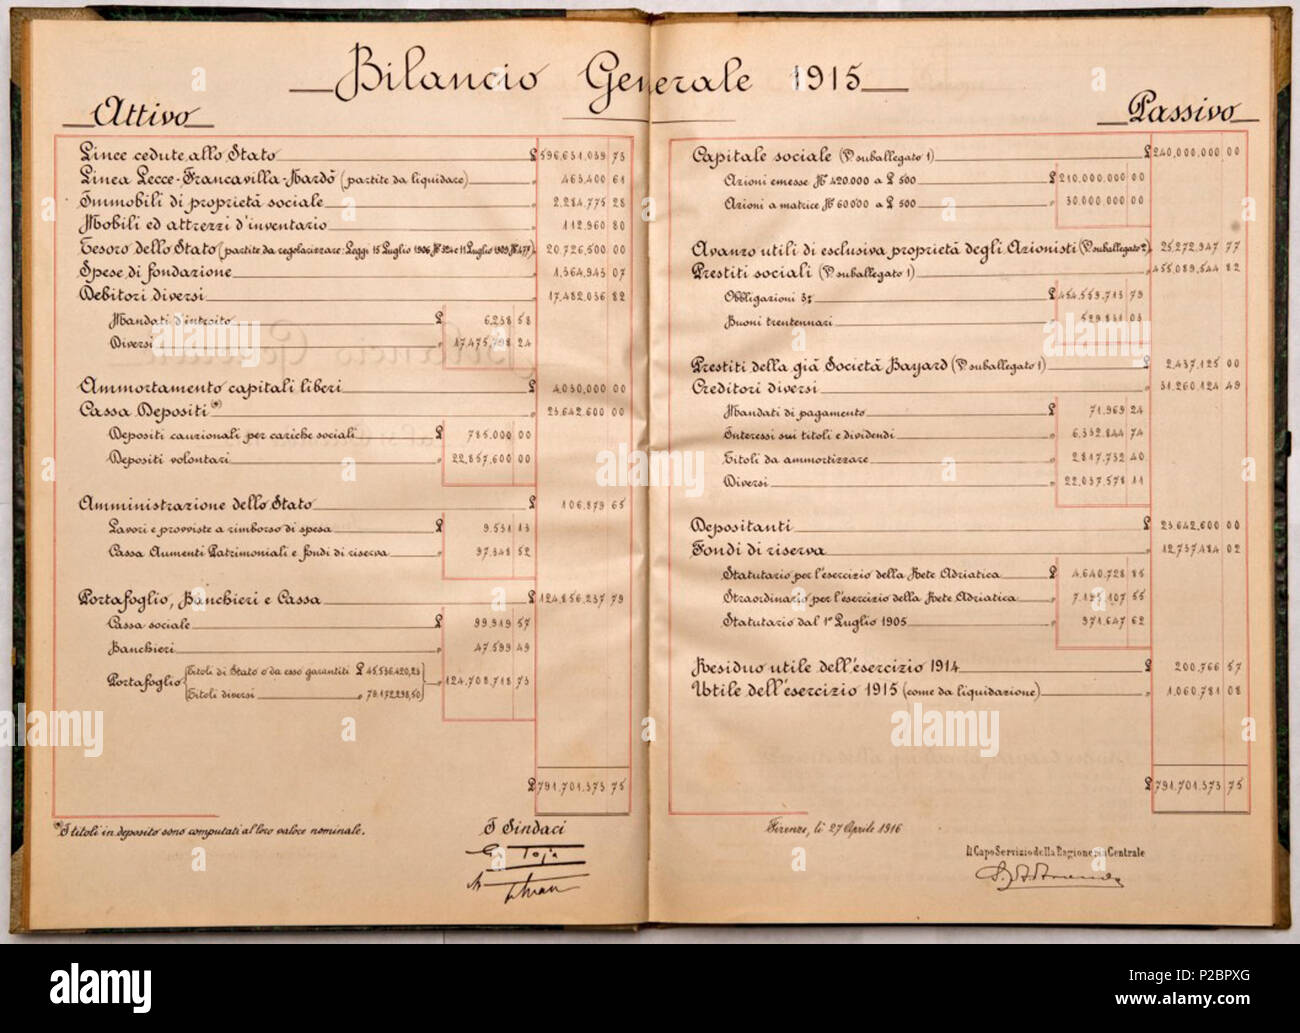 Bilancio Generale 1915
Attivo
Linee cedute allo Stato £ 596,631,039 75
Linea Lecce-Francavilla-Nardò (partite da liquidare) „ 463,400 61
Immobili di proprietà sociale „ 2,284,775 28
Mobili ed attrezzi d'inventario „ 112,960 80
Tesoro dello Stato (partite da regolarizzare: Leggi 15 Luglio 1906, N° 324 e 11 Luglio 1909, N° 477) „ 20,726,500 00
Spese di fondazione „ 1,364,943 07
Debitori diversi „ 17,482,036 82
Mandati d'introito £ 6,238 58
Diversi „ 17,475,798 24
Ammortamento capitali liberi £ 4,030,000 00
Cassa Depositi (*) „ 23,642,600 00
Depositi cauzionali per cariche sociali £ 785,000 00
Depositi volontari „ 22,857,600 00
Amministrazione dello Stato £ 106,879 65
Lavori e provviste a rimborso di spesa £ 9,531 13
Cassa Aumenti Patrimoniali e fondi di riserva „ 97,348 52
Portafoglio, Banchieri e Cassa £ 124,856,237 79
Cassa sociale £ 99,919 57
Banchieri „ 47,599 49
Portafoglio { Titoli di Stato o da esso garantiti £ 45,536,420,23 } „ 124,708,718 73
Titoli diversi „ 79,172,298,50
£ 791,701,373 75
(*) I titoli in deposito sono computati al loro valore nominale.
I Sindaci
G. Toja
Passivo
Capitale sociale (V° suballegato 1) £ 240,000,000 00
Azioni emesse N° 420.000 a £ 500 £ 210,000,000 00
Azioni a matrice N° 60000 a £ 500 „ 30,000,000 00
Avanzo utili di esclusiva proprietà degli Azionisti (V° suballegato 2) „ 25,272,947 77
Prestiti sociali (V° suballegato 1) „ 455,089,544 82
Obbligazioni 3% £ 454,559,713 79
Buoni trentennari „ 529,831 03
Prestiti della già Società Bayard (V° suballegato 1) £ 2,437,125 00
Creditori diversi „ 31,260,124 49
Mandati di pagamento £ 71,969 24
Interessi sui titoli e dividendi „ 6,332,844 74
Titoli da ammortizzare „ 2,817,732 40
Diversi „ 22,037,578 11
Depositanti £ 23,642,600 00
Fondi di riserva „ 12,737,484 02
Statutario per l'esercizio della Rete Adriatica £ 4,640,728 85
Straordinario per l'esercizio della Rete Adriatica „ 7,125,107 55
Statutario dal 1° Luglio 1905 „ 971,647 62
Residuo utile dell'esercizio 1914 £ 200,766 57
Utile dell'esercizio 1915 (come da liquidazione) „ 1,060,781 08
£ 791,701,373 75
Firenze, lì 27 Aprile 1916
Il Capo Servizio della Ragioneria Centrale
alamy
Image ID: P2BPXG
www.alamy.com